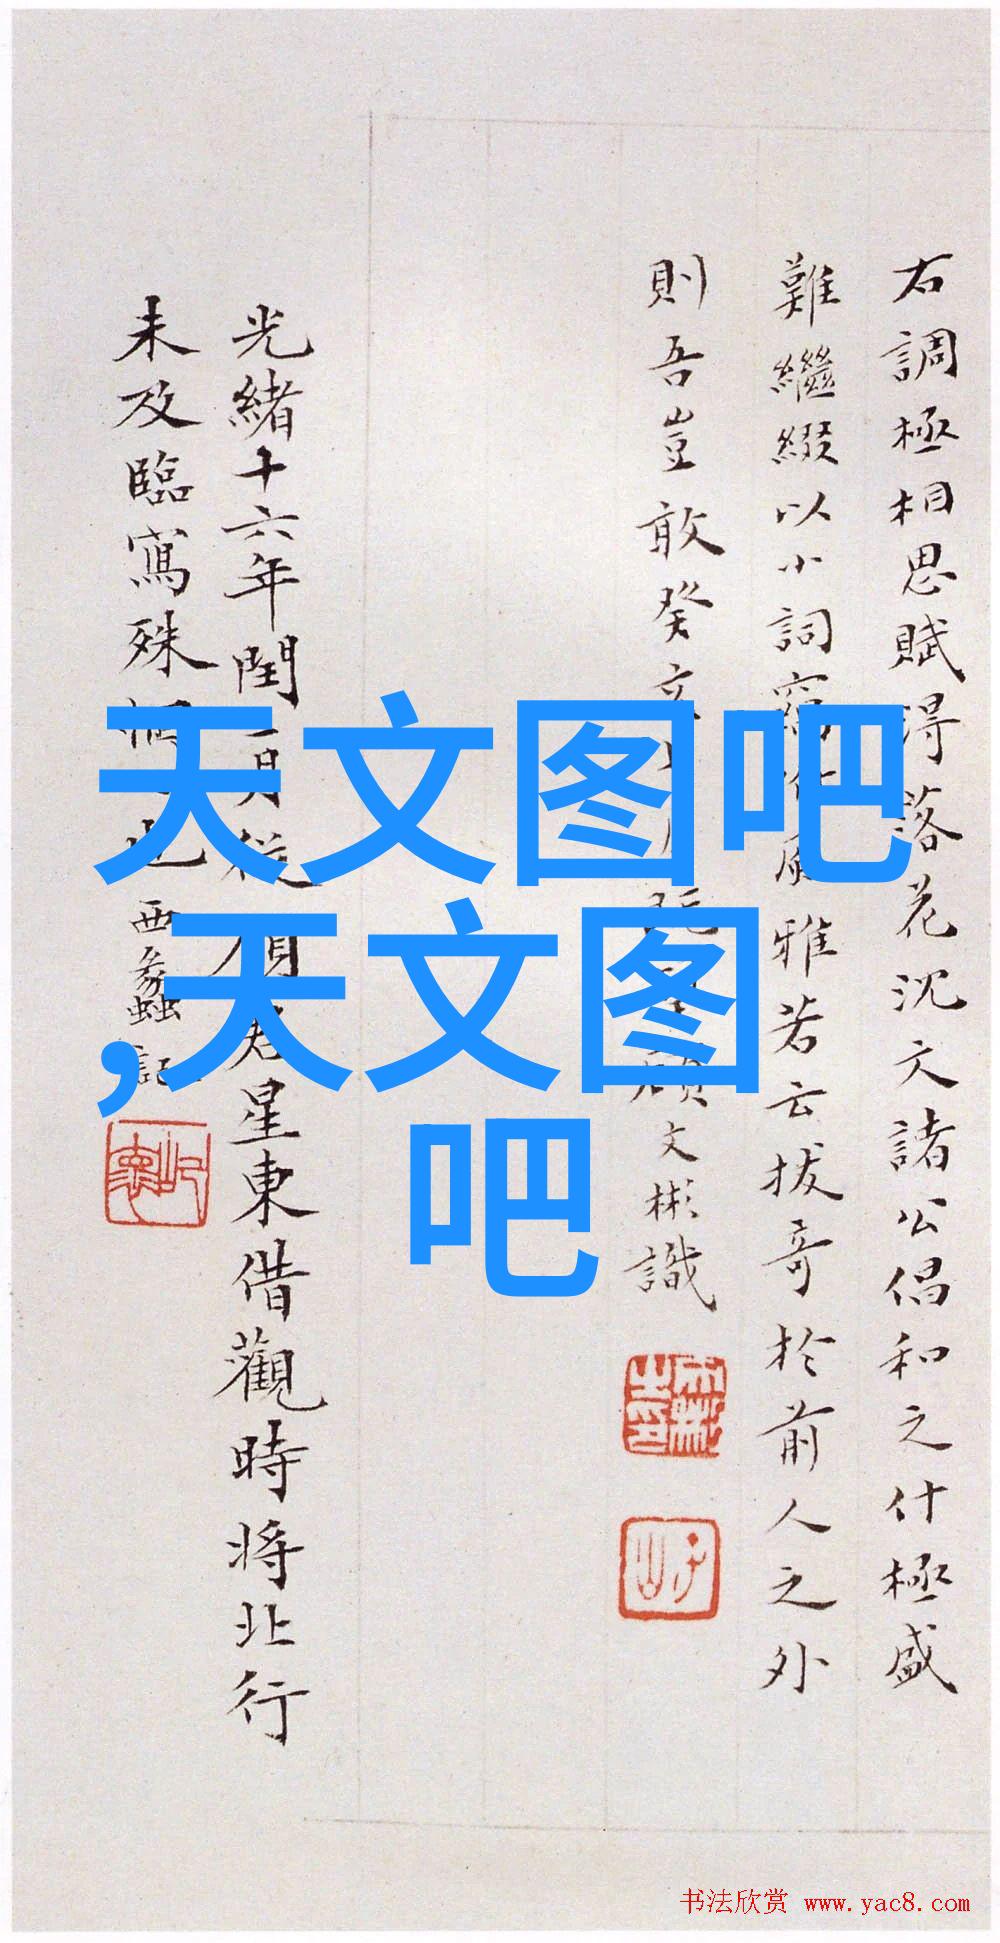 右調極相思賦得落花沈文諸公倡和之什極盛
難繼綴以小詞雅若云拔奇於前人之外
則吾豈敢癸文彬識
文彬之印
子山
光緒十六年閏月從星東借觀時將北行
未及臨寫殊也西蠡記
屺懷
天文图吧
,天文图
吧
书法欣赏 www.yac8.com